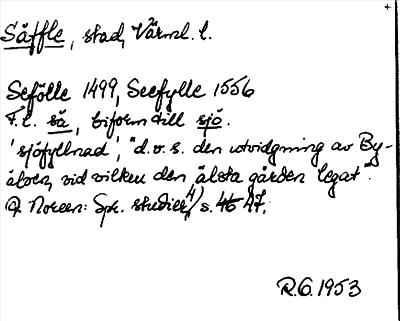 Säffle, stad, Värml. l.
Sefölle 1499, Seefylle 1556
F.l. sä, biform till sjö.
'sjöfyllnad', "d.v.s. den utvidgning av By-
älven, vid vilken den älsta gården legat".
A. Noreen: Spr. studier, 4) s. 46 47.
R.O. 1953